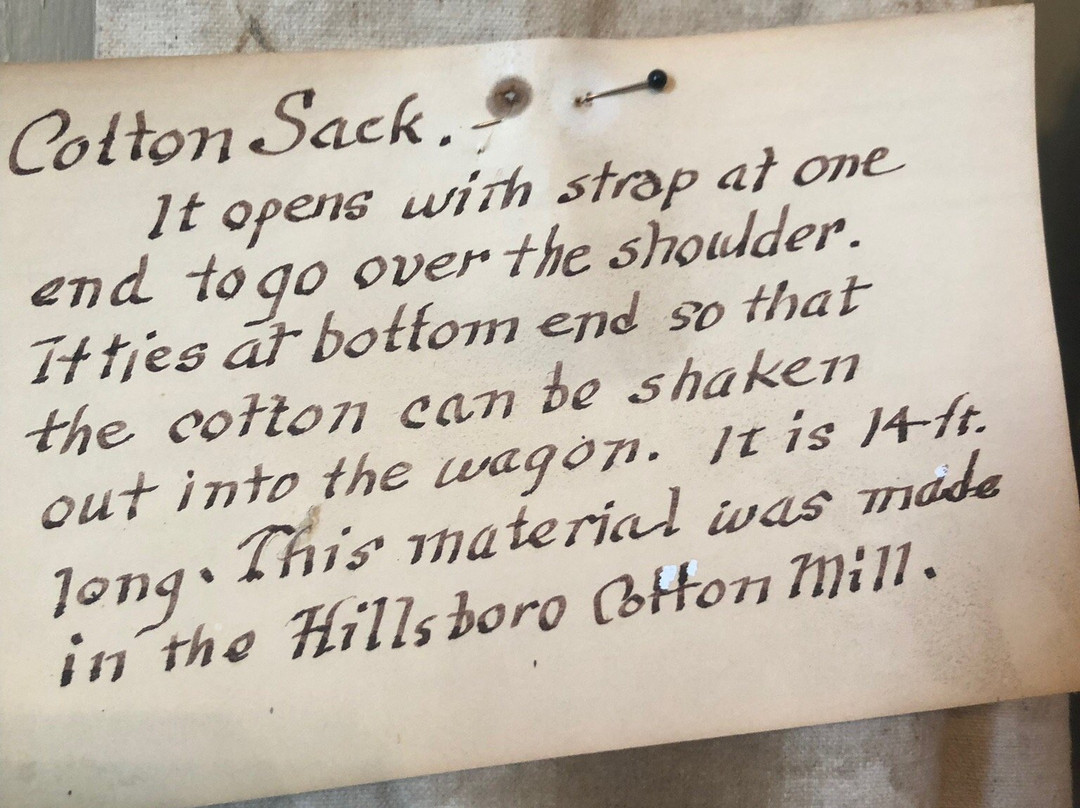 Cotton Sack.
It opens with strap at one
end to go over the shoulder.
It ties at bottom end so that
the cotton can be shaken
out into the wagon. It is 14-ft.
long. This material was made
in the Hillsboro Cotton Mill.